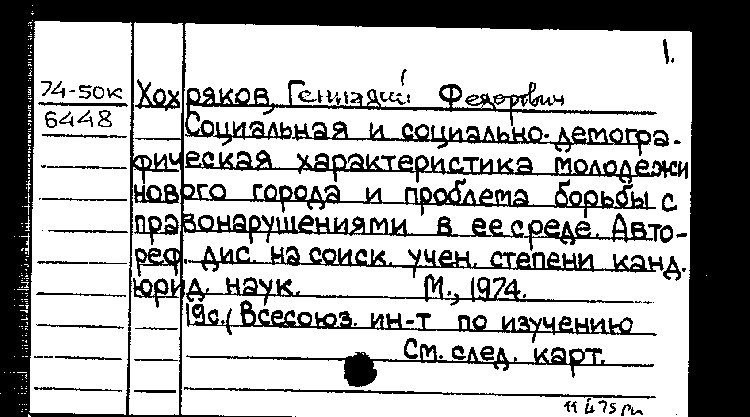 1.
74-50к Хохряков, Геннадий Федорович
6448 Социальная и социально-демогра-
фическая характеристика молодежи
нового города и проблема борьбы с
правонарушениями в ее среде. Авто-
реф. дис. на соиск. учен. степени канд.
юрид. наук. М., 1974.
19с. (Всесоюз. ин-т по изучению
См. след. карт.